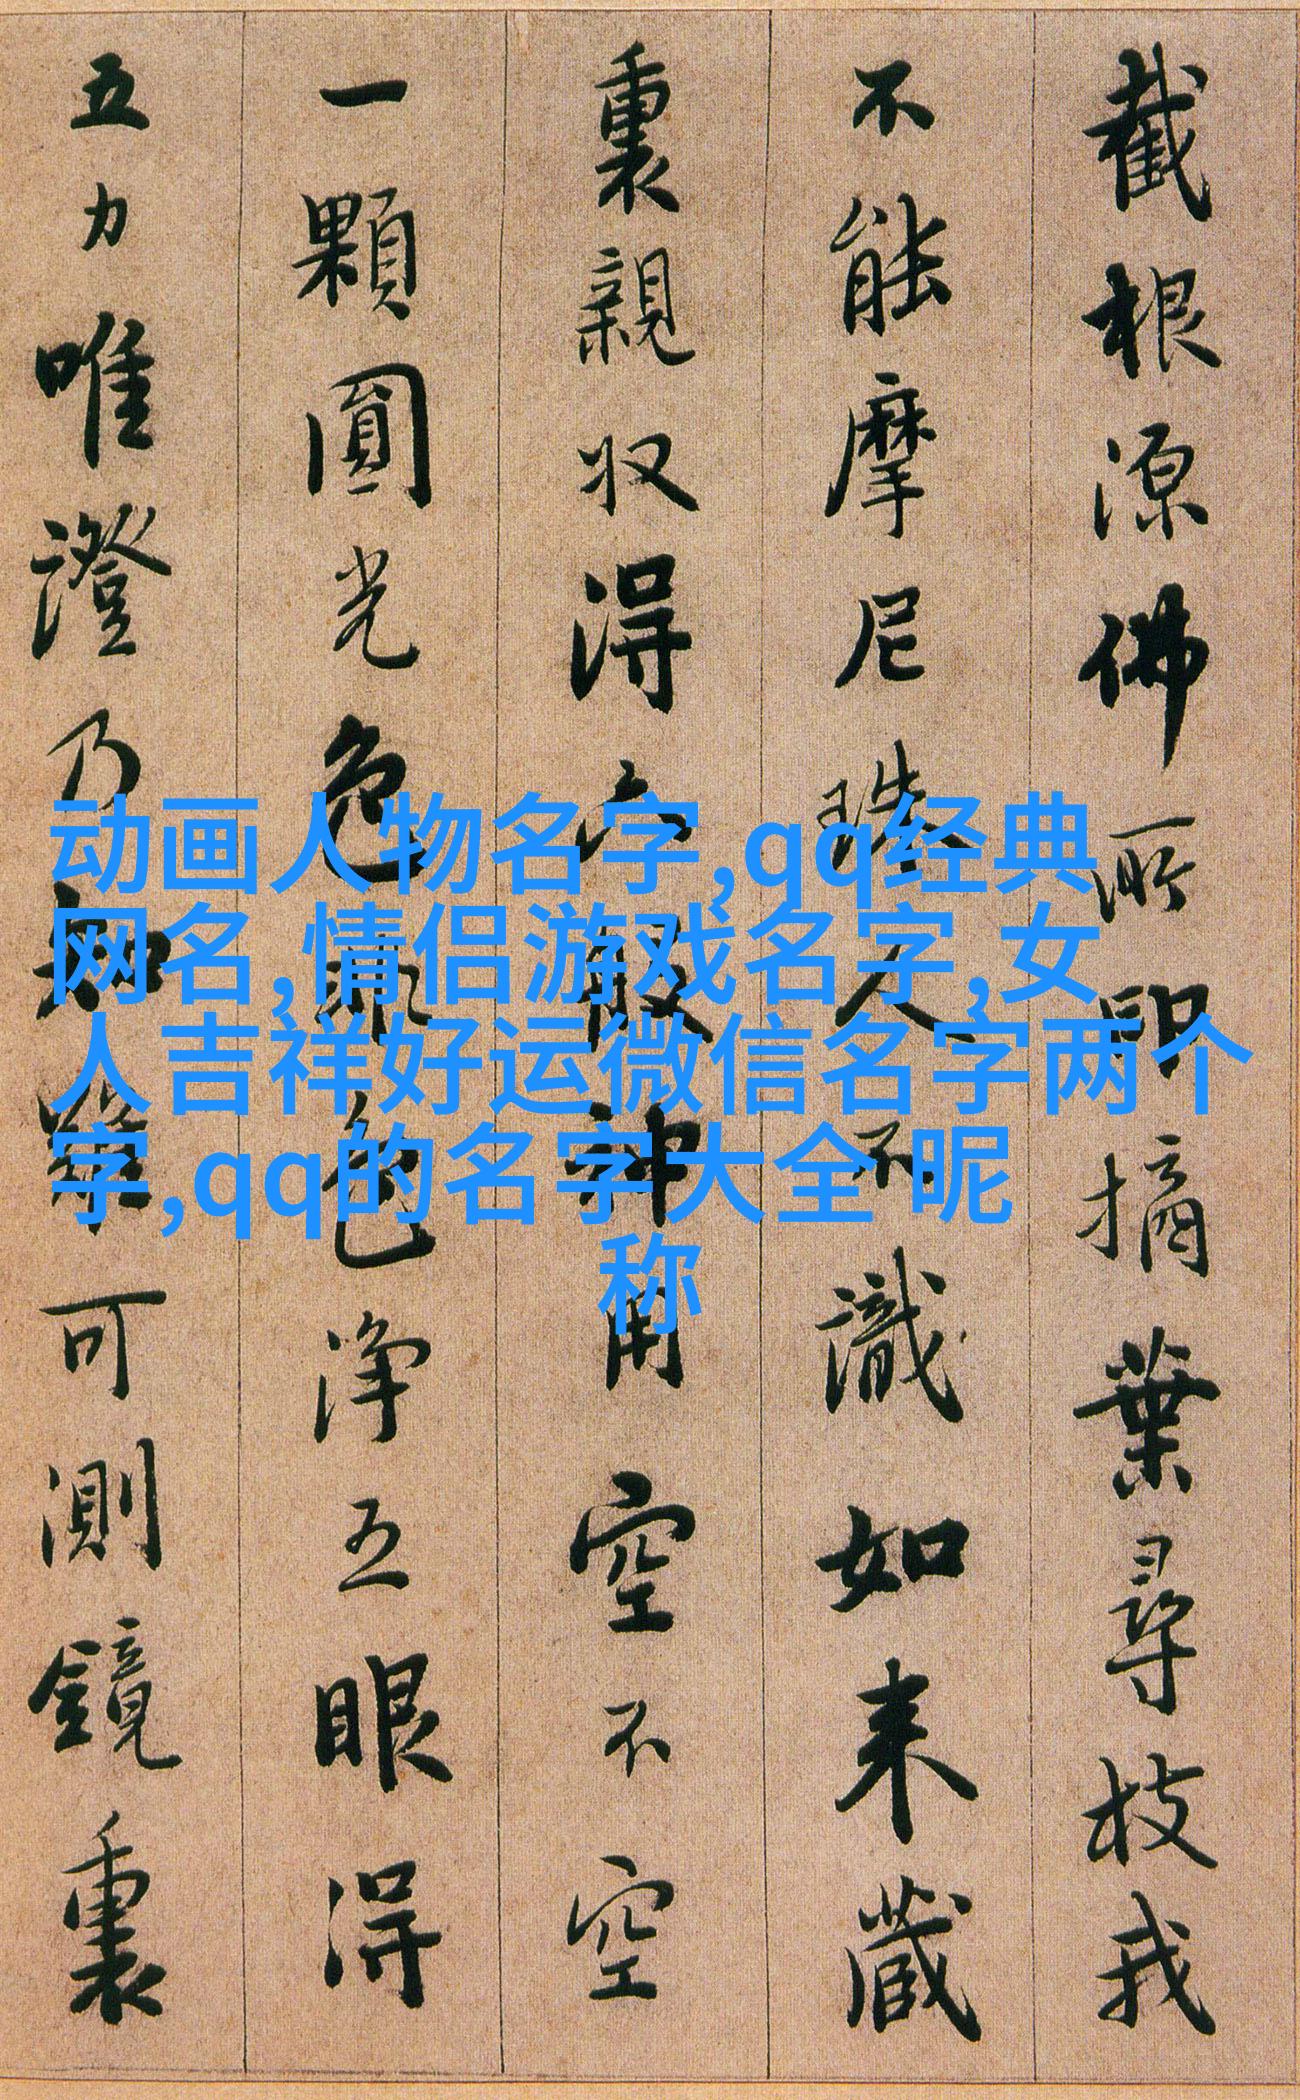 截根源佛所印摘葉尋枝我
不能摩尼珠人不識如来藏
裏親収得六般神用空不空
一顆圓光色非色淨五眼得
五力唯證乃知難可測鏡裏
动画人物名字,qq经典
网名,情侣游戏名字,女
人吉祥好运微信名字两个
字,qq的名字大全 昵
称